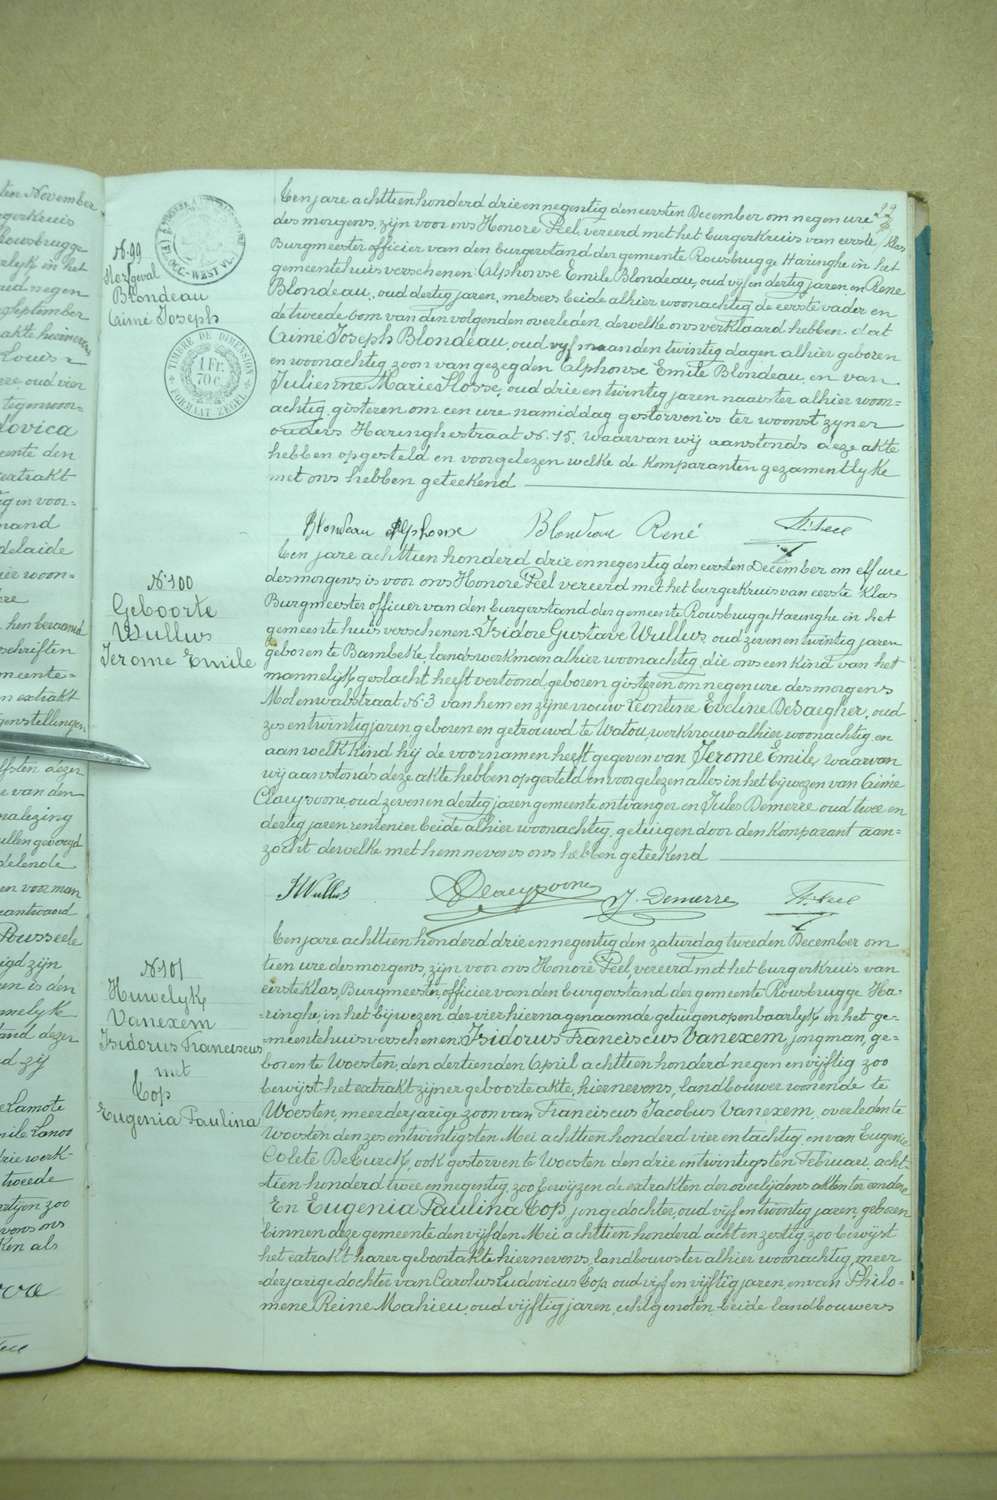 ten November
gerkruis
Rousbrugge
erlyk in het
negen
September
akte
Louis
ere oud vier
tegenwoor=
dovica
eente den
extrakt
in voor=
nand
delaide
ier woon=
ere
hen beraamd
schriften
meente=
n extrakt
genstellingen
sten dezer
e van den
nalezing
ullen gevoegd
delende
en voor man
eantwoord
Pousseele
igd zijn
en is den
welyk
tand dezer
d zy
eLamote
mile Lanoo
drie werk-
tweede
styen zoo
voons ons
ken als
99
N. 99
Sterfgeval
Blondeau
Aimé Joseph
TIMBRE DE DIMENSION
1 Fr.
70 c.
FORMAAT-ZEGEL
Een jare achttien honderd drie en negentig den eersten December om negen ure
des morgens, zijn voor ons Honoré Feel vereerd met het burgerkruis van eerste klas
Burgmeester officier van den burgerstand der gemeente Rousbrugge Haringhe in het
gemeentehuis verschenen Alphonse Emile Blondeau, oud vijf en dertig jaren en René
Blondeau, oud dertig jaren, metsers beide alhier woonachtig de eerste vader en
de tweede oom van den volgenden overleden, dewelke ons verklaard hebben dat
Aimé Joseph Blondeau, oud vyf maanden twintig dagen alhier geboren
en woonachtig zoon van gezegden Alphonse Emile Blondeau, en van
Julienne Marie Flosse, oud drie en twintig jaren naaister alhier woon=
achtig, gisteren om een ure namiddag gestorven is ter woonst zyner
ouders Haringhestraat N. 15, waarvan wij aanstonds deze akte
hebben opgesteld en voorgelezen welke de komparanten gezamentlyke
met ons hebben geteekend
Blondeau Alphonse Blondeau René H. Feel
N. 100
Geboorte
Wullus
Jerome Emile
Een jare achttien honderd drie en negentig den eersten December om elf ure
des morgens is voor ons Honoré Feel vereerd met het burgerkruis van eerste klas
Burgmeester officier van den burgerstand der gemeente Rousbrugge Haringhe in het
gemeentehuis verschenen: Isidore Gustave Wullus, oud zeven en twintig jaren
geboren te Bambeke, landswerkman alhier woonachtig, die ons een kind van het
mannelyk geslacht heeft vertoond, geboren gisteren om negen ure des morgens
Molenwalstraat N. 3 van hem en zijne vrouw Leontine Eveline DeSaegher, oud
zes en twintig jaren geboren en getrouwd te Watou, werkvrouw alhier woonachtig, en
aan welk kind hij de voornamen heeft gegeven van Jerome Emile, waarvan
wij aanstonds deze akte hebben opgesteld en voorgelezen alles in het bijwezen van Aimé
Claeysoone, oud zeven en dertig jaren gemeente ontvanger en Jules Demerre oud twee en
dertig jaren rentenier beide alhier woonachtig, getuigen door den komparant aan=
zocht dewelke met hem nevens ons hebben geteekend
I Wullus A Claeysoone J. Demerre H. Feel
N. 101
Huwelyk
Vanexem
Isidorus Franciscus
met
Cop
Eugenia Paulina
Een jare achttien honderd drie en negentig den zaturdag tweeden December om
tien ure des morgens, zijn voor ons Honoré Feel, vereerd met het burgerkruis van
eerste klas, Burgmeester, officier van den burgerstand der gemeente Rousbrugge Ha=
=ringhe, in het bijwezen der vier hierna genaamde getuigen openbaarlyk in het ge=
=meentehuis verschenen: Isidorus Franciscus Vanexem, jongman, ge=
boren te Woesten, den dertienden April achttien honderd negen en vijftig zoo
bewijst het extrakt zijner geboorte akte, hiernevens, landbouwer wonende te
Woesten, meerderjarige zoon van Franciscus Jacobus Vanexem, overleden te
Woesten den zes en twintigsten Mei achttien honderd vier en tachtig, en van Eugenie
Colete DeCurck, ook gestorven te Woesten den drie en twintigsten Februari, acht=
=tien honderd twee en negentig, zoo bewijzen de extrakten der overlijdens akten ten eerdere
En Eugenia Paulina Cop, jonge dochter, oud vijf en twintig jaren, geboren
binnen deze gemeente den vijfden Mei achttien honderd acht en zestig, zoo bewijst
het extrakt harer geboortakte hiernevens, landbouwster alhier woonachtig meer
=derjarige dochter van Carolus Ludovicus Cop, oud vijf en vijftig jaren, en van Philo=
mene Reine Mahieu, oud vijftig jaren, echtgenoten, beide landbouwers